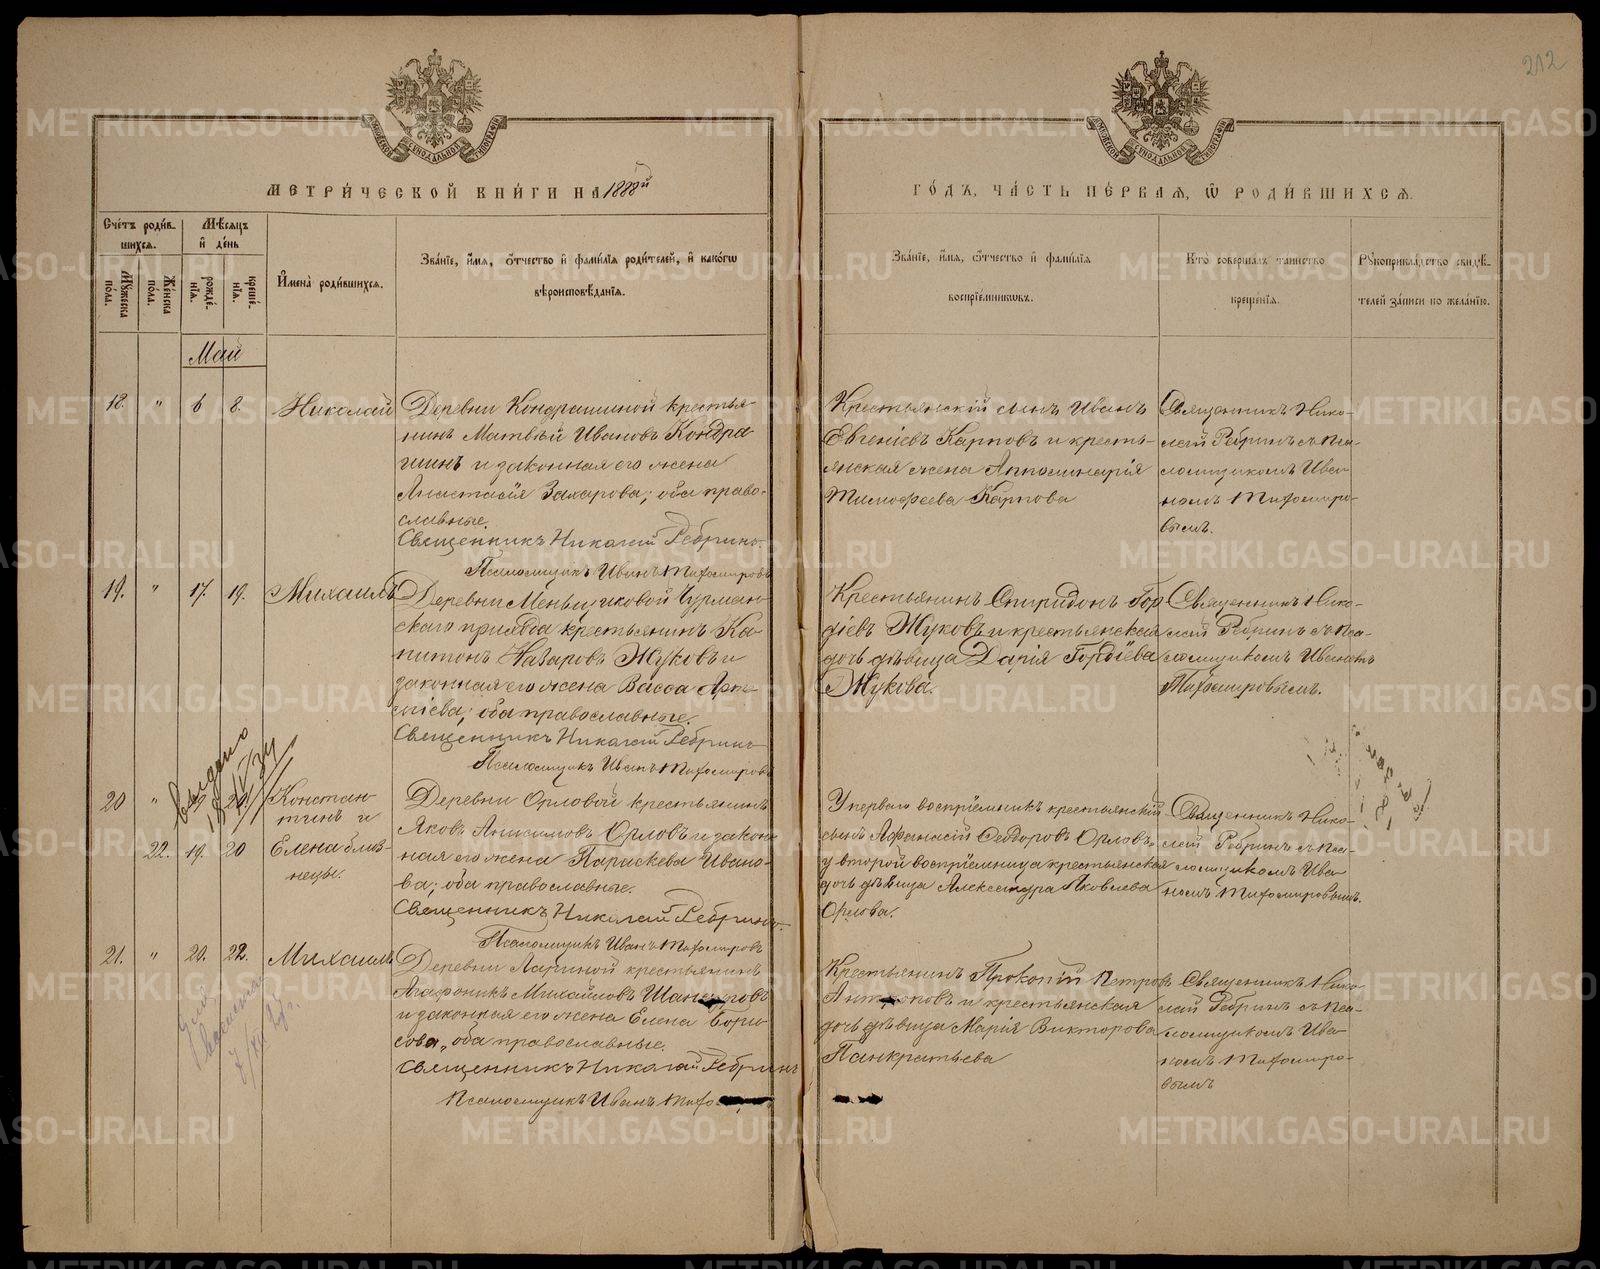 212
МЕТРИ́ЧЕСКОЙ КНИ́ГИ НА 1888й
ГО́ДЪ, ЧА́СТЬ ПЕ́РВАЯ, Ѿ РОДИ́ВШИХСЯ.
Сче́тъ роди́в-
шихся.
Мѣ́сяцъ
и҆ де́нь
Мꙋжеска
по́ла.
Же́нска
по́ла.
рожде́-
нїя.
креще́-
нїя.
И҆мена̀ роди́вшихся.
Зва́нїе, и҆́мя, ѻ҆́тчество и҆ фами́лїя роди́телей, и҆ како́гѡ
вѣроисповѣ́данїя.
Зва́нїе, и҆́мя, ѻ҆́тчество и҆ фами́лїя
воспрїе́мниковъ.
Кто̀ соверша́лъ таинство
креще́нїя.
Рꙋкоприкла́дство свидѣ́-
телей за́писи по жела́нїю.
Май
18. " 6 8. Николай
Деревни Кондрашиной крестья-
нинъ Матвѣй Ивановъ Кондра-
шинъ и законная его жена
Анастасія Захарова; оба право-
славные.
Священникъ Николай Ребринъ.
Псаломщикъ Иванъ Тихомировъ
Крестьянскій сынъ Иванъ
Евгеніевъ Карповъ и кресть-
янская жена Апполинарія
Тимофеева Карпова
Священникъ Нико-
лай Ребринъ съ пса-
ломщикомъ Ива-
номъ Тихомиро-
вымъ.
19. " 17. 19. Михаилъ
Деревни Меньщиковой Чурман-
скаго прихода крестьянинъ Ка-
питонъ Назаровъ Жуковъ и
законная его жена Васса Арсе-
ніева; оба православные.
Священникъ Николай Ребринъ
Псаломщикъ Иванъ Тихомировъ
Крестьянинъ Спиридонъ Гор-
діевъ Жуковъ и крестьянская
дочь дѣвица Дарія Гордѣева
Жукова.
Священникъ Нико-
лай Ребринъ съ пса-
ломщикомъ Иваномъ
Тихомировымъ.
Выдано
20 " 19 20 Констан-
тинъ и
22. 19. 20 Елена близ-
нецы.
Деревни Орловой крестьянинъ
Яковъ Анисимовъ Орловъ и закон-
ная его жена Параскева Ивано-
ва; оба православные.
Священникъ Николай Ребринъ.
Псаломщикъ Иванъ Тихомировъ
У перваго воспріемникъ крестьянскій
сынъ Афанасій Ѳедоровъ Орловъ,
у второй воспріемница крестьянская
дочь дѣвица Александра Яковлева
Орлова.
Священникъ Нико-
лай Ребринъ съ пса-
ломщикомъ Ива-
номъ Тихомировымъ.
21. " 20. 22. Михаилъ
Деревни Лариной крестьянинъ
Агафоникъ Михайловъ
и законная его жена Елена Бори-
сова, оба православные.
Священникъ Николай Ребринъ
Псаломщикъ Иванъ
Крестьянинъ Прокопій Петровъ
Антроповъ и крестьянская
дочь дѣвица Марія Викторова
Панкратьева
Священникъ Нико-
лай Ребринъ съ пса-
ломщикомъ Ива-
номъ Тихомиро-
вымъ
METRIKI.GASO-URAL.RU